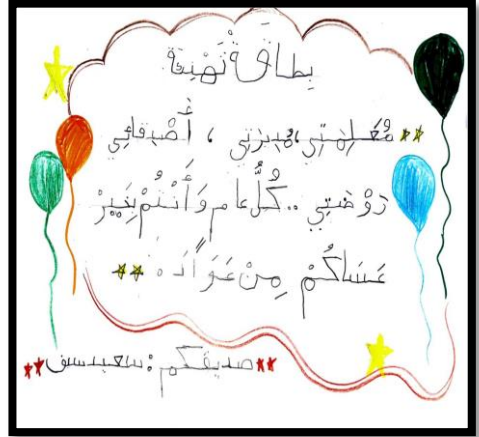 بطاقة تهنئة
مُعَلِمَتِي، مُديرَتي ، أَصْدِقائِي
رَوْضَتِي .. كُلُّ عام وَأَنْتُمْ بِخَيْرْ
عَسَاكُمْ مِنْ عَوَّادَهْ
صديقكم : سعيد سيف